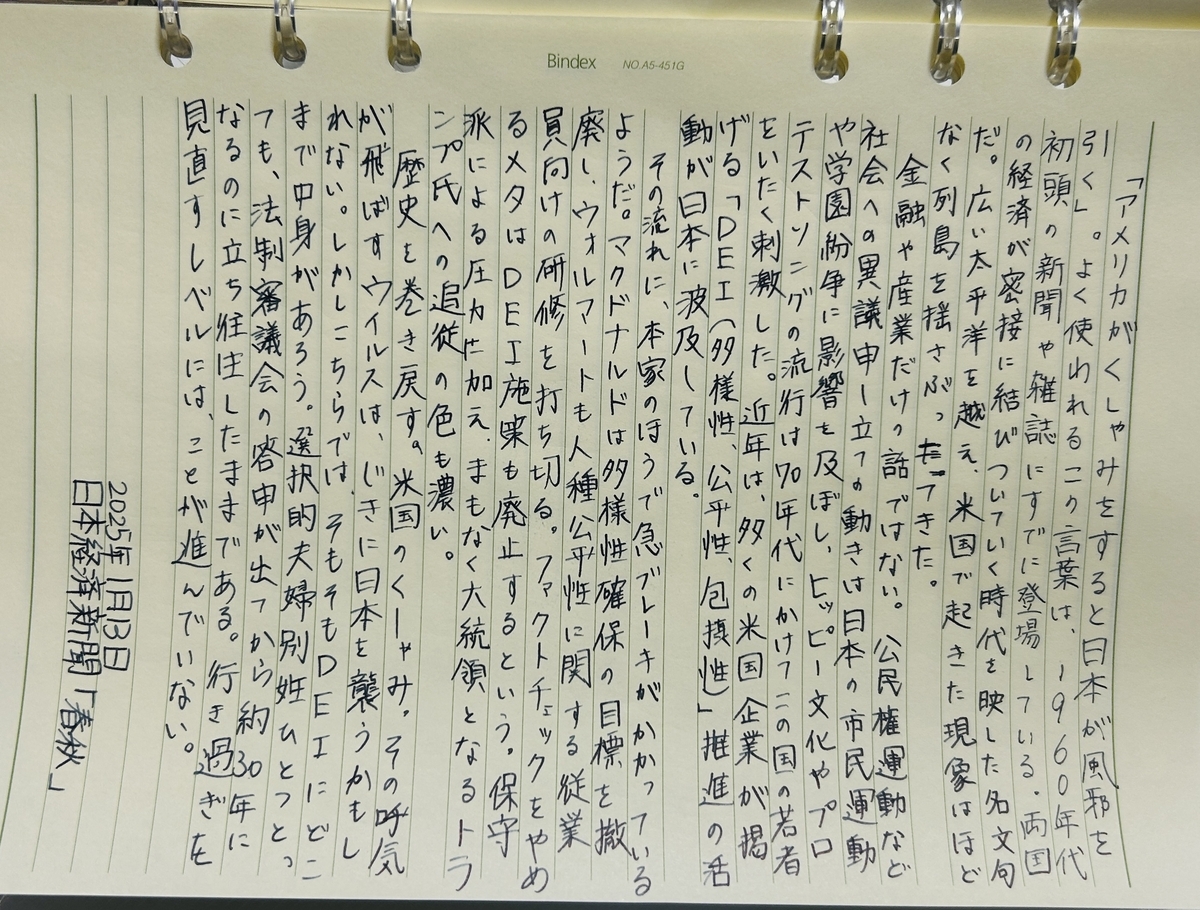 Bindex NO.A5-451G
「アメリカがくしゃみをすると日本が風邪を
引く」。よく使われるこの言葉は、1960年代
初頭の新聞や雑誌にすでに登場している。両国
の経済が密接に結びついていく時代を映した名文句
だ。広い太平洋を越え、米国で起きた現象はほど
なく列島を揺さぶってきた。
金融や産業だけの話ではない。公民権運動など
社会への異議申し立ての動きは日本の市民運動
や学園紛争に影響を及ぼし、ヒッピー文化やプロ
テストソングの流行は70年代にかけてこの国の若者
をいたく刺激した。近年は、多くの米国企業が掲
げる「DEI(多様性、公平性、包摂性)」推進の活
動が日本に波及している。
その流れに、本家のほうで急ブレーキがかかっている
ようだ。マクドナルドは多様性確保の目標を撤
廃し、ウォルマートも人種公平性に関する従業
員向けの研修を打ち切る。ファクトチェックをやめ
るメタはDEI施策も廃止するという。保守
派による圧力に加え、まもなく大統領となるトラ
ンプ氏への追従の色も濃い。
歴史を巻き戻す。米国のくしゃみ。その呼気
が飛ばすウイルスは、じきに日本を襲うかもし
れない。しかしこちらでは、そもそもDEIにどこ
まで中身があろう。選択的夫婦別姓ひとつとっ
ても、法制審議会の答申が出てから約30年に
なるのに立ち往生したままである。行き過ぎを
見直すレベルには、ことが進んでいない。
2025年1月13日
日本経済新聞「春秋」